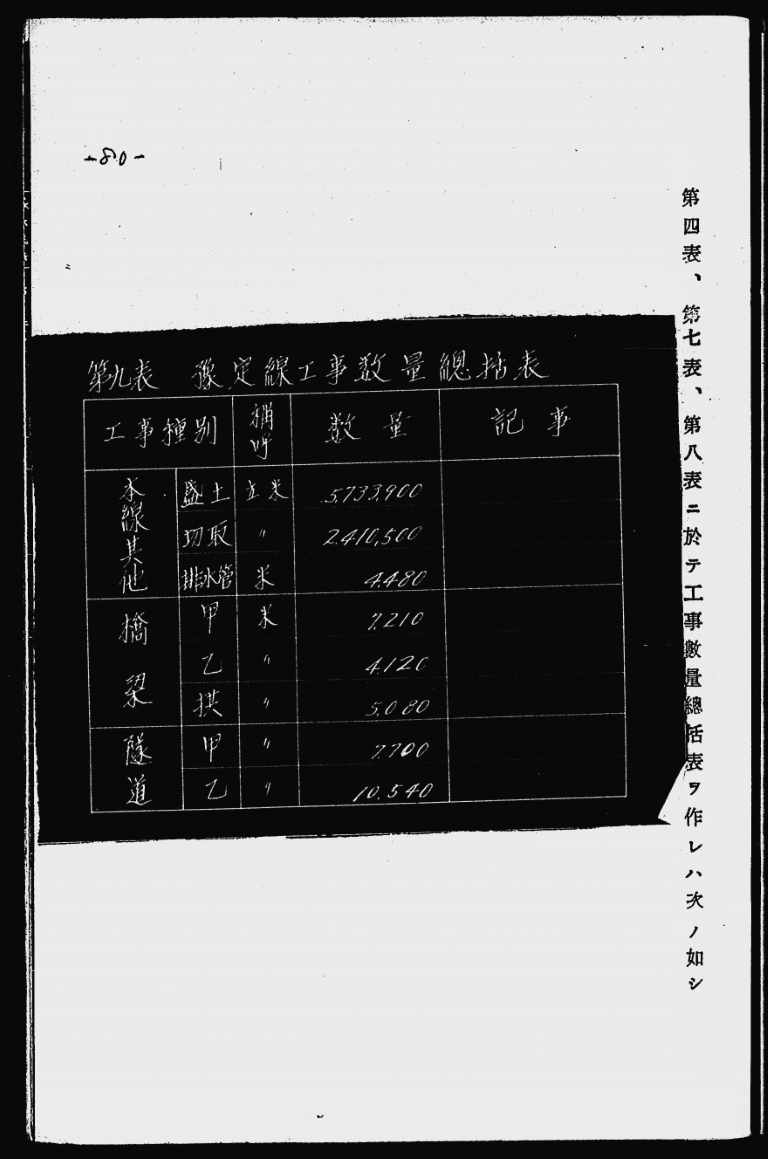 -80-
第四表、第七表、第八表ニ於テ工事數量總括表ヲ作レハ次ノ如シ
第九表 豫定線工事数量總括表
工事種別 稱呼 数量 記事
本線其他 盛土 立米 5,733,900
切取 〃 2,410,500
排水管 米 4,480
橋梁 甲 米 7,210
乙 〃 4,120
拱 〃 5,080
隧道 甲 〃 7,700
乙 〃 10,540